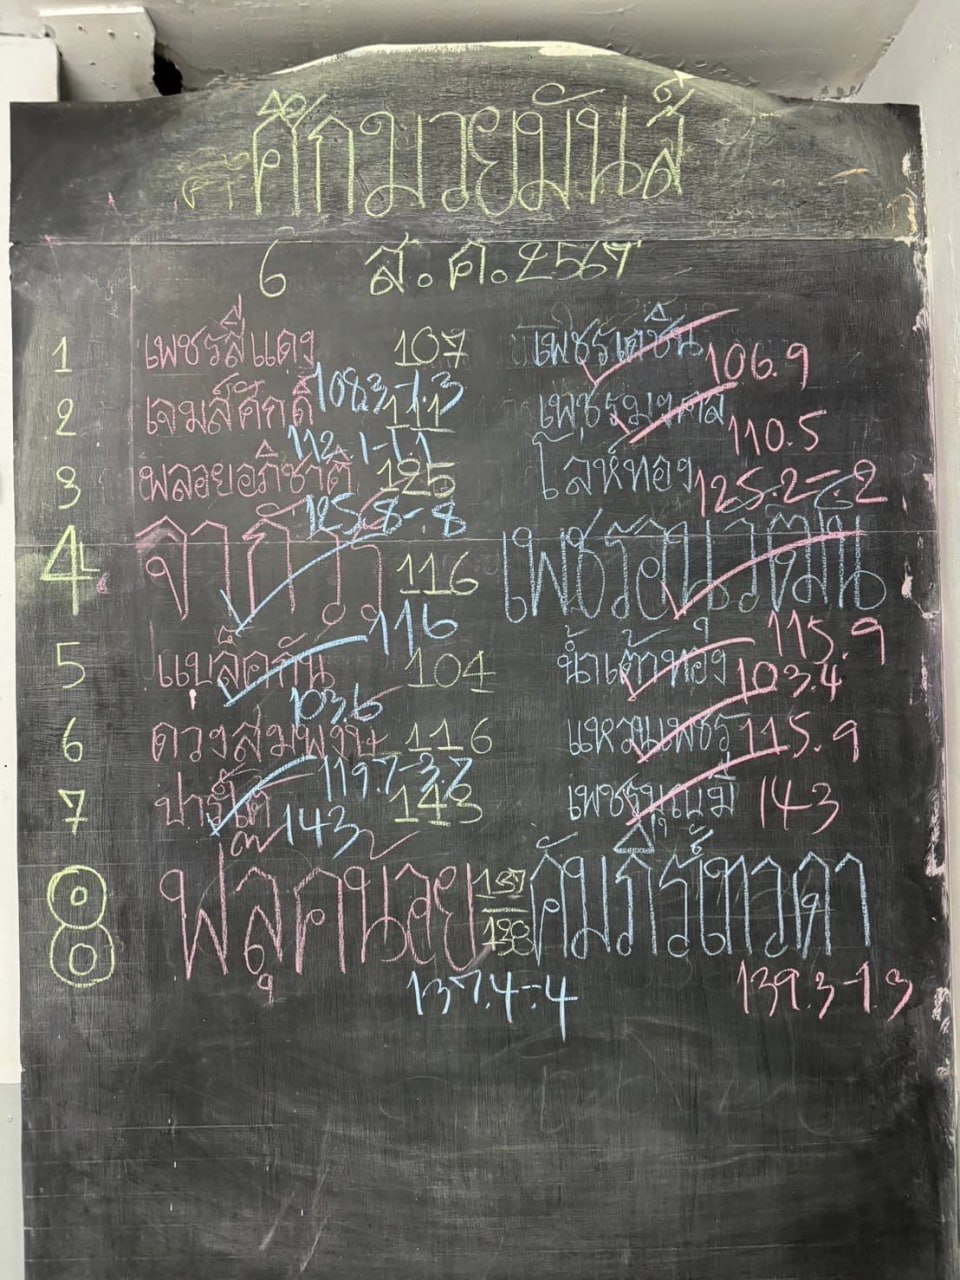 ศึกมวยมันส์
6 ส.ค. 2567
1 เพชรสีแดง 107 เพชรเตชิน 106.9
108.3-1.3
2 เจมส์ศักดิ์ 111 เพชรมงคล 110.5
112.1-1.1
3 พลอยอภิชาติ 125 โลห์ทอง 125.2-.2
125.8-.8
4 จากัวร์ 116 เพชรอนุวัฒน์ 115.9
116
5 แบล็คกัน 104 น้ำเต้าทอง 103.4
103.6
6 ดวงสมพงษ์ 116 แหวนเพชร 115.9
119.7-3.7
7 143 143
143
8 ฟลุคน้อย 137 138 คัมภีร์เทวดา
137.4-.4 139.3-1.3